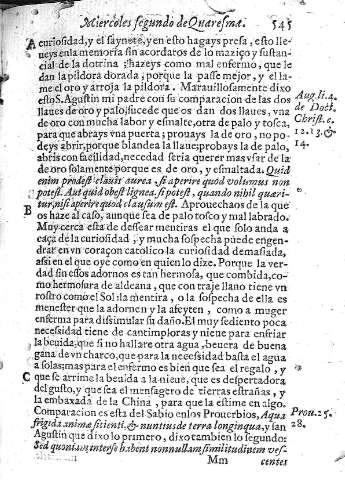 Miercoles segundo de Quaresma. 545
A curiosidad, y el saynete, y en esto hagays presa, esto lle-
ueys en la memoria sin acordaros de lo maziço y sustan-
cial de la dotrina: hazeys como mal enfermo, que le
dan la pildora dorada, porque la passe mejor, y el la-
me el oro y arroja la pildora. Marauillosamente dixo
esto S. Agustin mi padre con su comparacion de las dos
llaues de oro y palo, sucede que os dan dos llaues, vna
de oro con mucha labor y esmalte, otra de palo y tosca,
para que abrays vna puerta; prouays la de oro, no po-
deys abrir, porque blandea la llaue; probays la de palo,
abris con facilidad, necedad seria querer mas vsar de la
de oro solamente porque es de oro, y esmaltada. Quid
enim prodest clauis aurea, si aperire quod volumus non
potest. Aut quid obest lignea, si potest, quando nihil quæri-
tur, nisi aperire quod clausum est. Aprouechaos de la que
B os haze al caso, aunque sea de palo tosco y mal labrado.
Muy cerca esta de dessear mentiras el que solo anda a
caça de la curiosidad, y mucha sospecha puede engen-
drar en vn coraçon catolico la curiosidad demasiada,
assi en el que oye como en quien lo dize. Porque la ver-
dad sin essos adornos es tan hermosa, que combida, co-
mo hermosura de aldeana, que con traje llano tiene vn
rostro como el Sol: la mentira, o la sospecha de ella es
menester que la adornen y la afeyten, como a muger
enferma para dissimular su daño. El muy sediento poca
necessidad tiene de cantimploras y nieue para enfriar
la beuida, que si no hallare otra agua, beuera de buena
gana de vn charco, que para la necessidad basta el agua
a solas: mas para el enfermo es bien que sea el regalo, y
C que se arrime la beuida a la nieue, que es despertadora
del gusto, y que sea el mensagero de tierras estrañas, y
la embaxada de la China, para que la estime en algo.
Comparacion es esta del Sabio en los Prouerbios, Aqua
frigida animæ sitienti, & nuntius de terra longinqua, y san
Agustin que dixo lo primero, dixo tambien lo segundo:
Sed quoniam inter se habent nonnullam similitudinem ves-
Mm centes
Aug. li. 4.
de Doct.
Christ. c.
12. 13. &
14.
Prou. 25.
28.